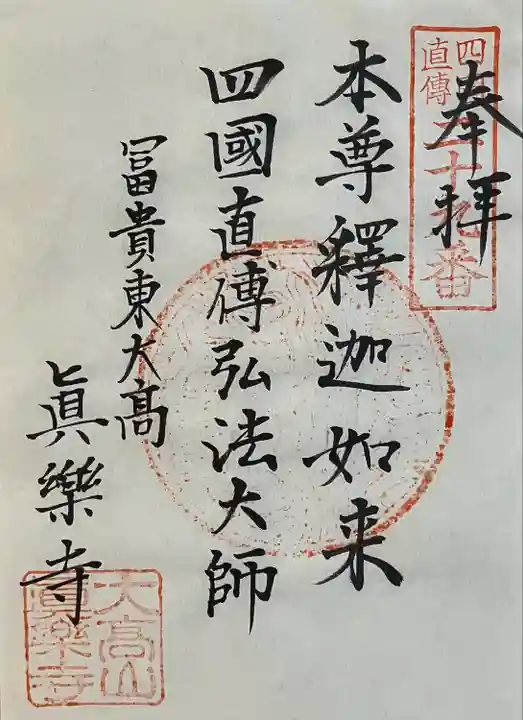 奉拝
四国
直傳
二十九番
本尊釋迦如来
四國直傳弘法大師
冨貴東大髙
眞樂寺
大髙山
眞樂寺